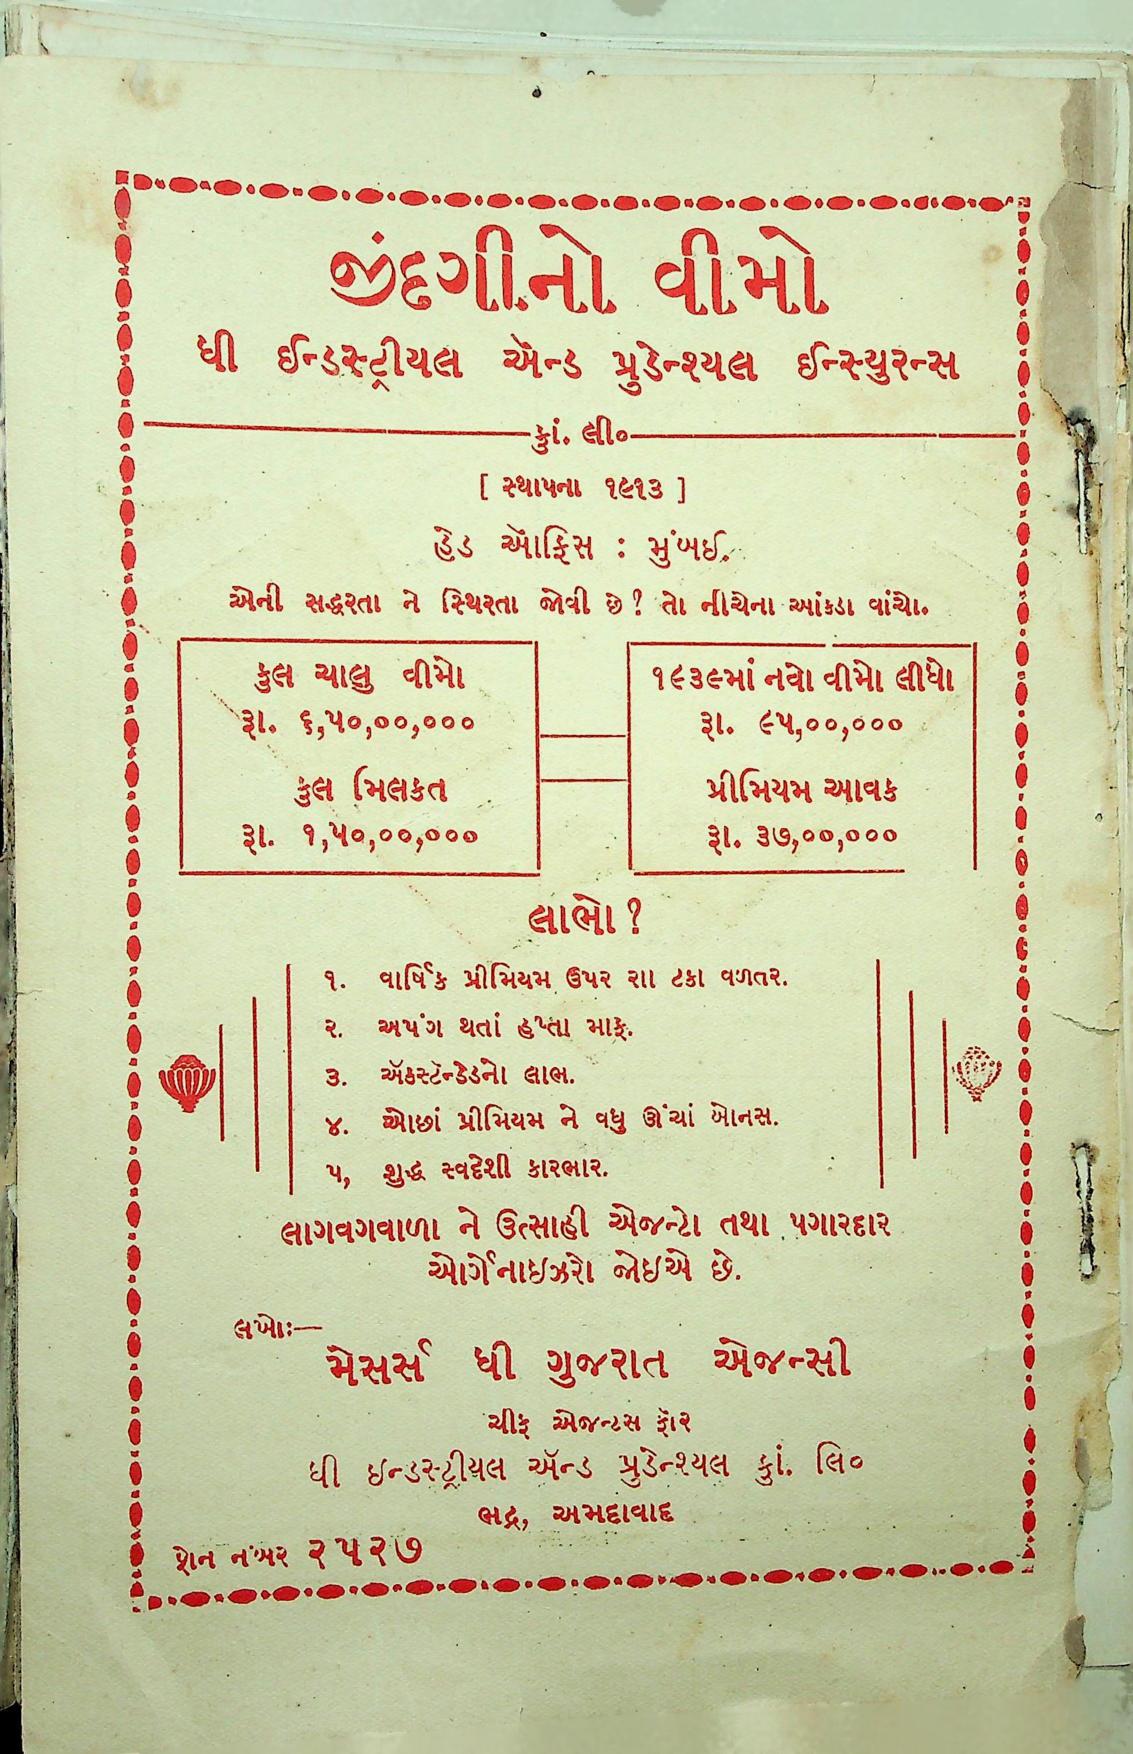 જીંદગીનો વીમો
ધી ઈન્ડસ્ટ્રીયલ ઍન્ડ પ્રુડેન્શ્યલ ઈન્સ્યુરન્સ
કુાં. લી૦
[ સ્થાપના ૧૯૧૩ ]
હેડ ઑફિસ : મુંબઈ.
એની સદ્ધરતા ને સ્થિરતા જોવી છે? તો નીચેના આંકડા વાંચો.
કુલ ચાલુ વીમો
રૂા. ૬,૫૦,૦૦,૦૦૦
કુલ મિલકત
રૂા. ૧,૫૦,૦૦,૦૦૦
૧૯૩૯માં નવો વીમો લીધો
રૂા. ૯૫,૦૦,૦૦૦
પ્રીમિયમ આવક
રૂા. ૩૭,૦૦,૦૦૦
લાભો ?
૧. વાર્ષિક પ્રીમિયમ ઉપર રાા ટકા વળતર.
૨. અપંગ થતાં હપ્તા માફ.
૩. ઍકસ્ટૅન્ડેડનો લાભ.
૪. ઓછાં પ્રીમિયમ ને વધુ ઊંચાં બોનસ.
૫, શુદ્ધ સ્વદેશી કારભાર.
લાગવગવાળા ને ઉત્સાહી એજન્ટો તથા પગારદાર
ઓર્ગેનાઇઝરો જોઇએ છે.
લખોઃ—
મેસર્સ ધી ગુજરાત એજન્સી
ચીફ એજન્ટસ ફૉર
ધી ઇન્ડસ્ટ્રીયલ ઍન્ડ પ્રુડેન્શ્યલ કુાં. લિ૦
ભદ્ર, અમદાવાદ
ફોન નંબર ૨૫૨૭